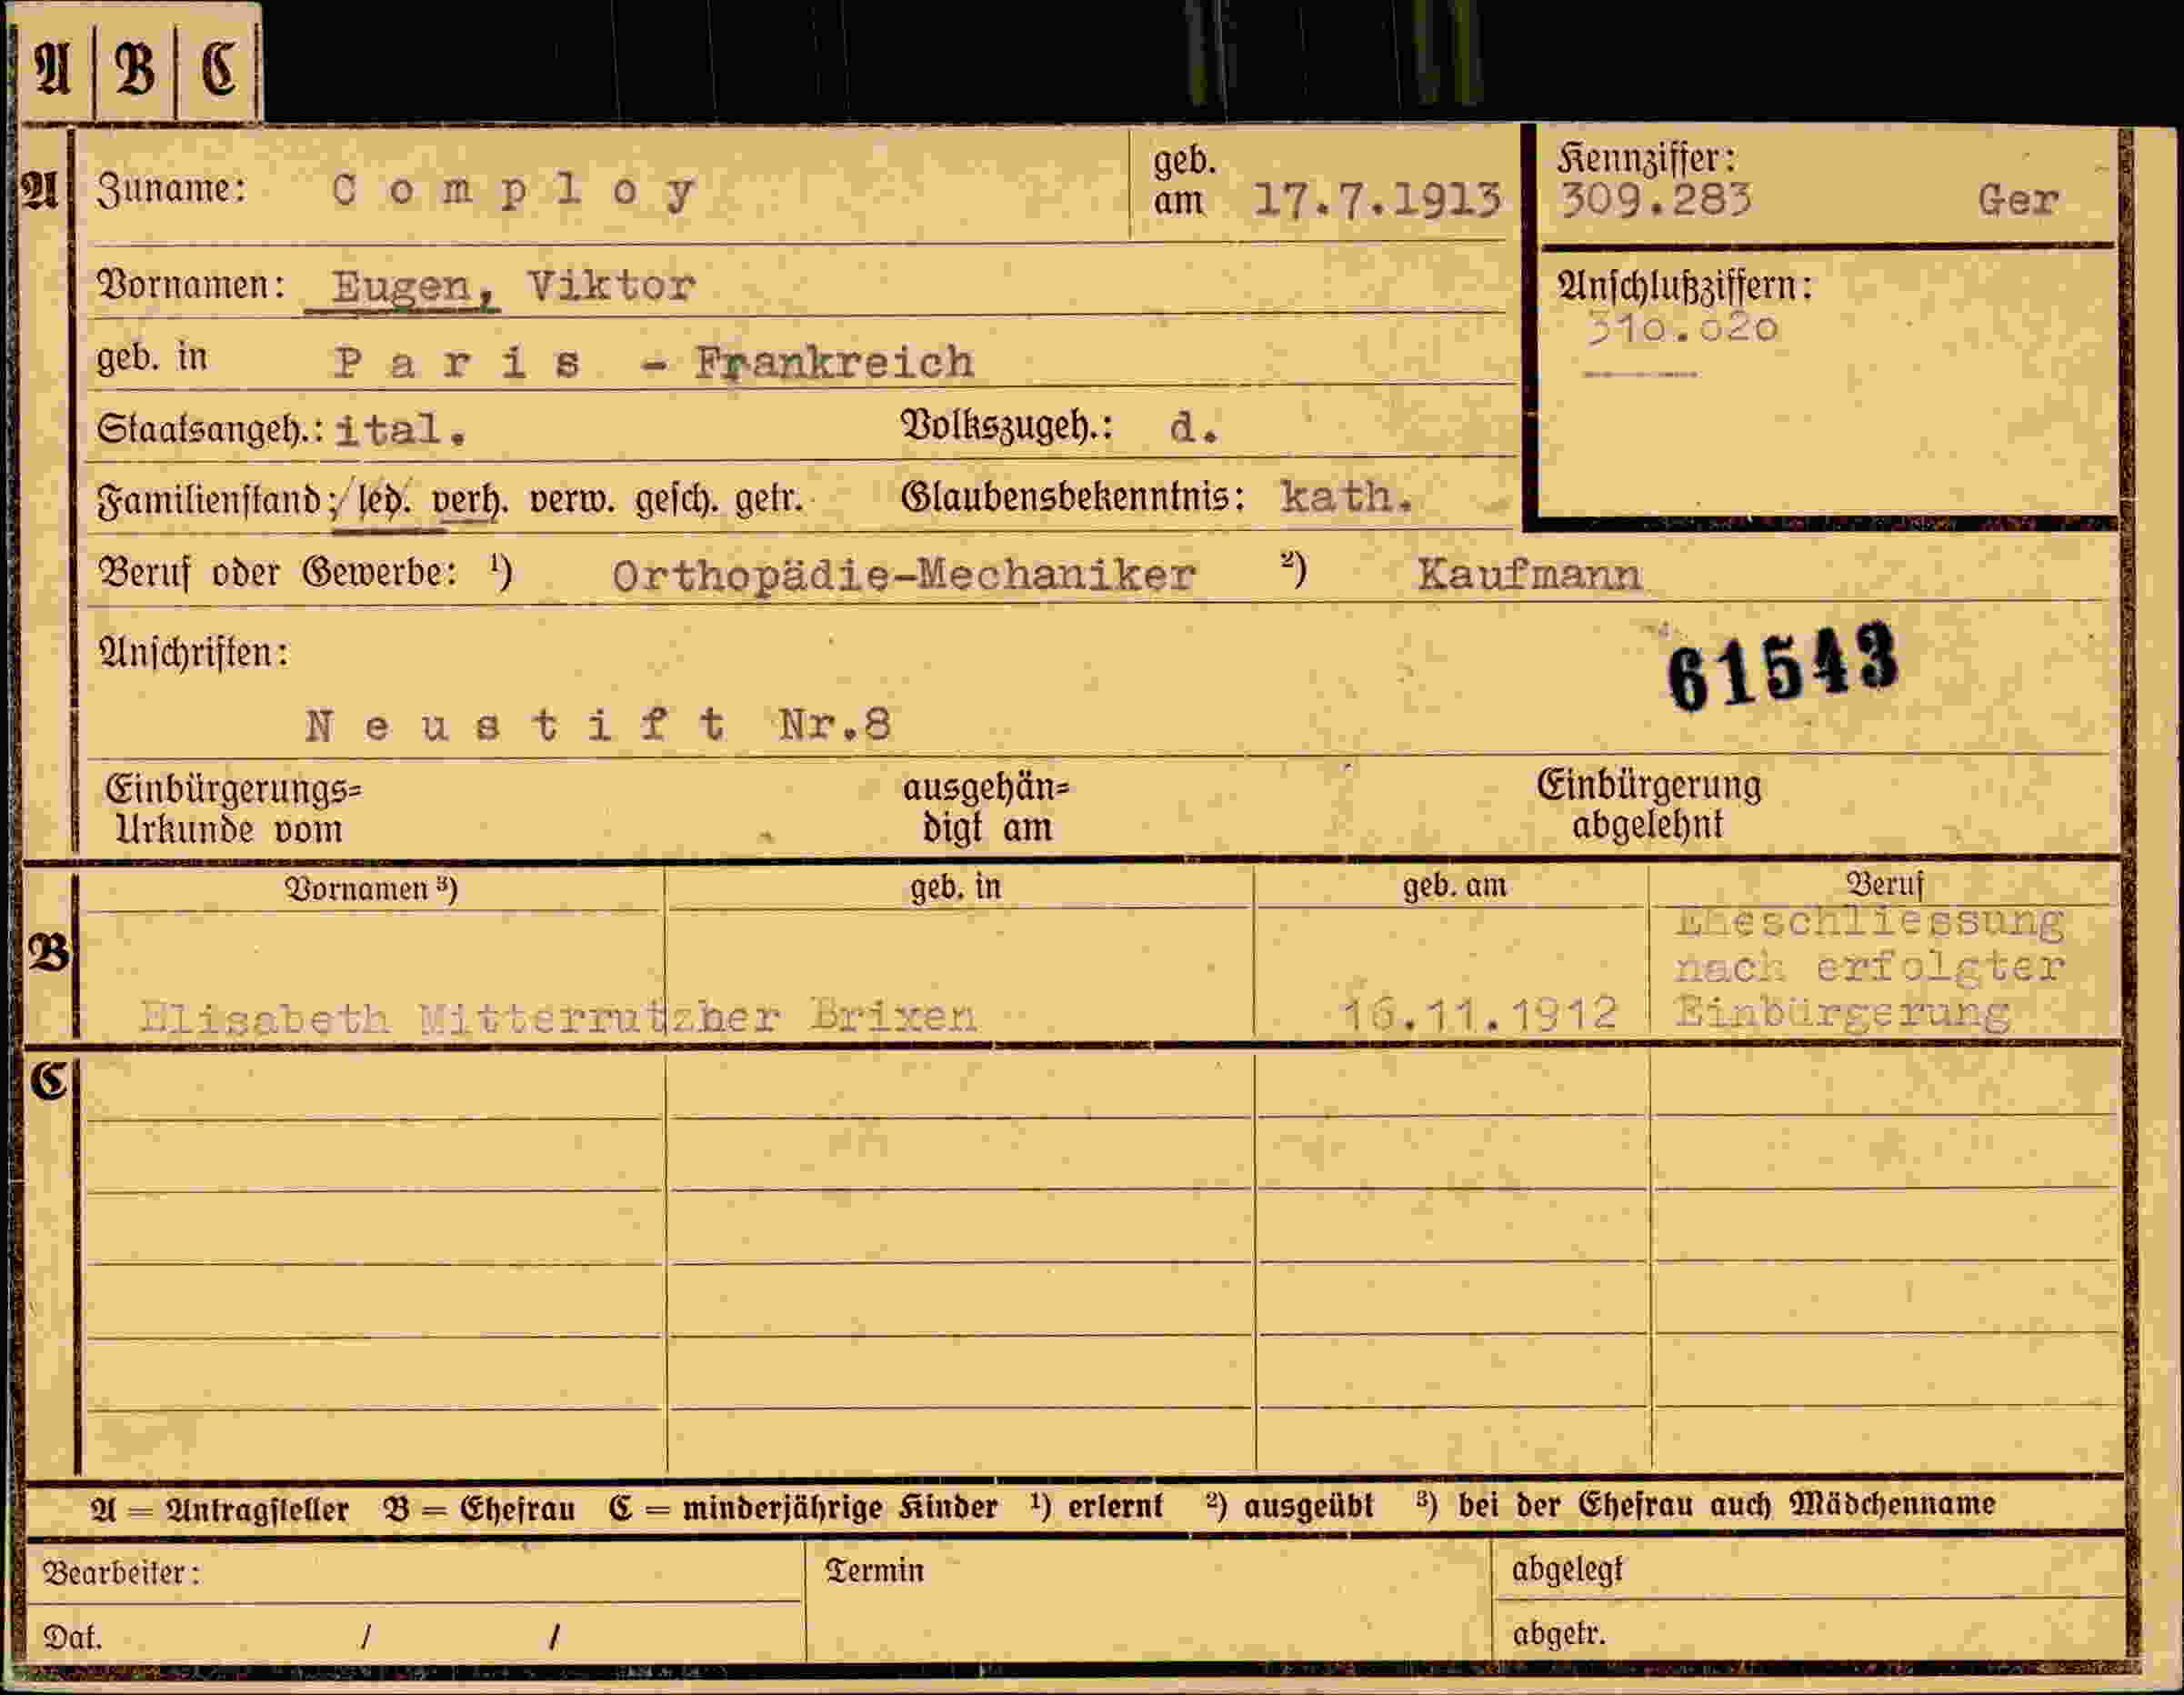 A B C
A Zuname: Comploy geb. am 17.7.1913
Kennziffer:
309.283 Ger
Vornamen: Eugen, Viktor
Anschlußziffern:
310.020
geb. in Paris - Frankreich
Staatsangeh.: ital. Volkszugeh.: d.
Familienstand: led. verh. verw. gesch. getr. Glaubensbekenntnis: kath.
Beruf oder Gewerbe: ¹) Orthopädie-Mechaniker ²) Kaufmann
Anschriften:
61543
Neustift Nr.8
Einbürgerungs= ausgehän= Einbürgerung
Urkunde vom digt am abgelehnt
B Vornamen ³) geb. in geb. am Beruf
Eheschliessung
nach erfolgter
Elisabeth Mitterrutzher Brixen 16.11.1912 Einbürgerung
C
A = Antragsteller B = Ehefrau C = minderjährige Kinder ¹) erlernt ²) ausgeübt ³) bei der Ehefrau auch Mädchenname
Bearbeiter: Termin abgelegt
Dat. / / abgetr.